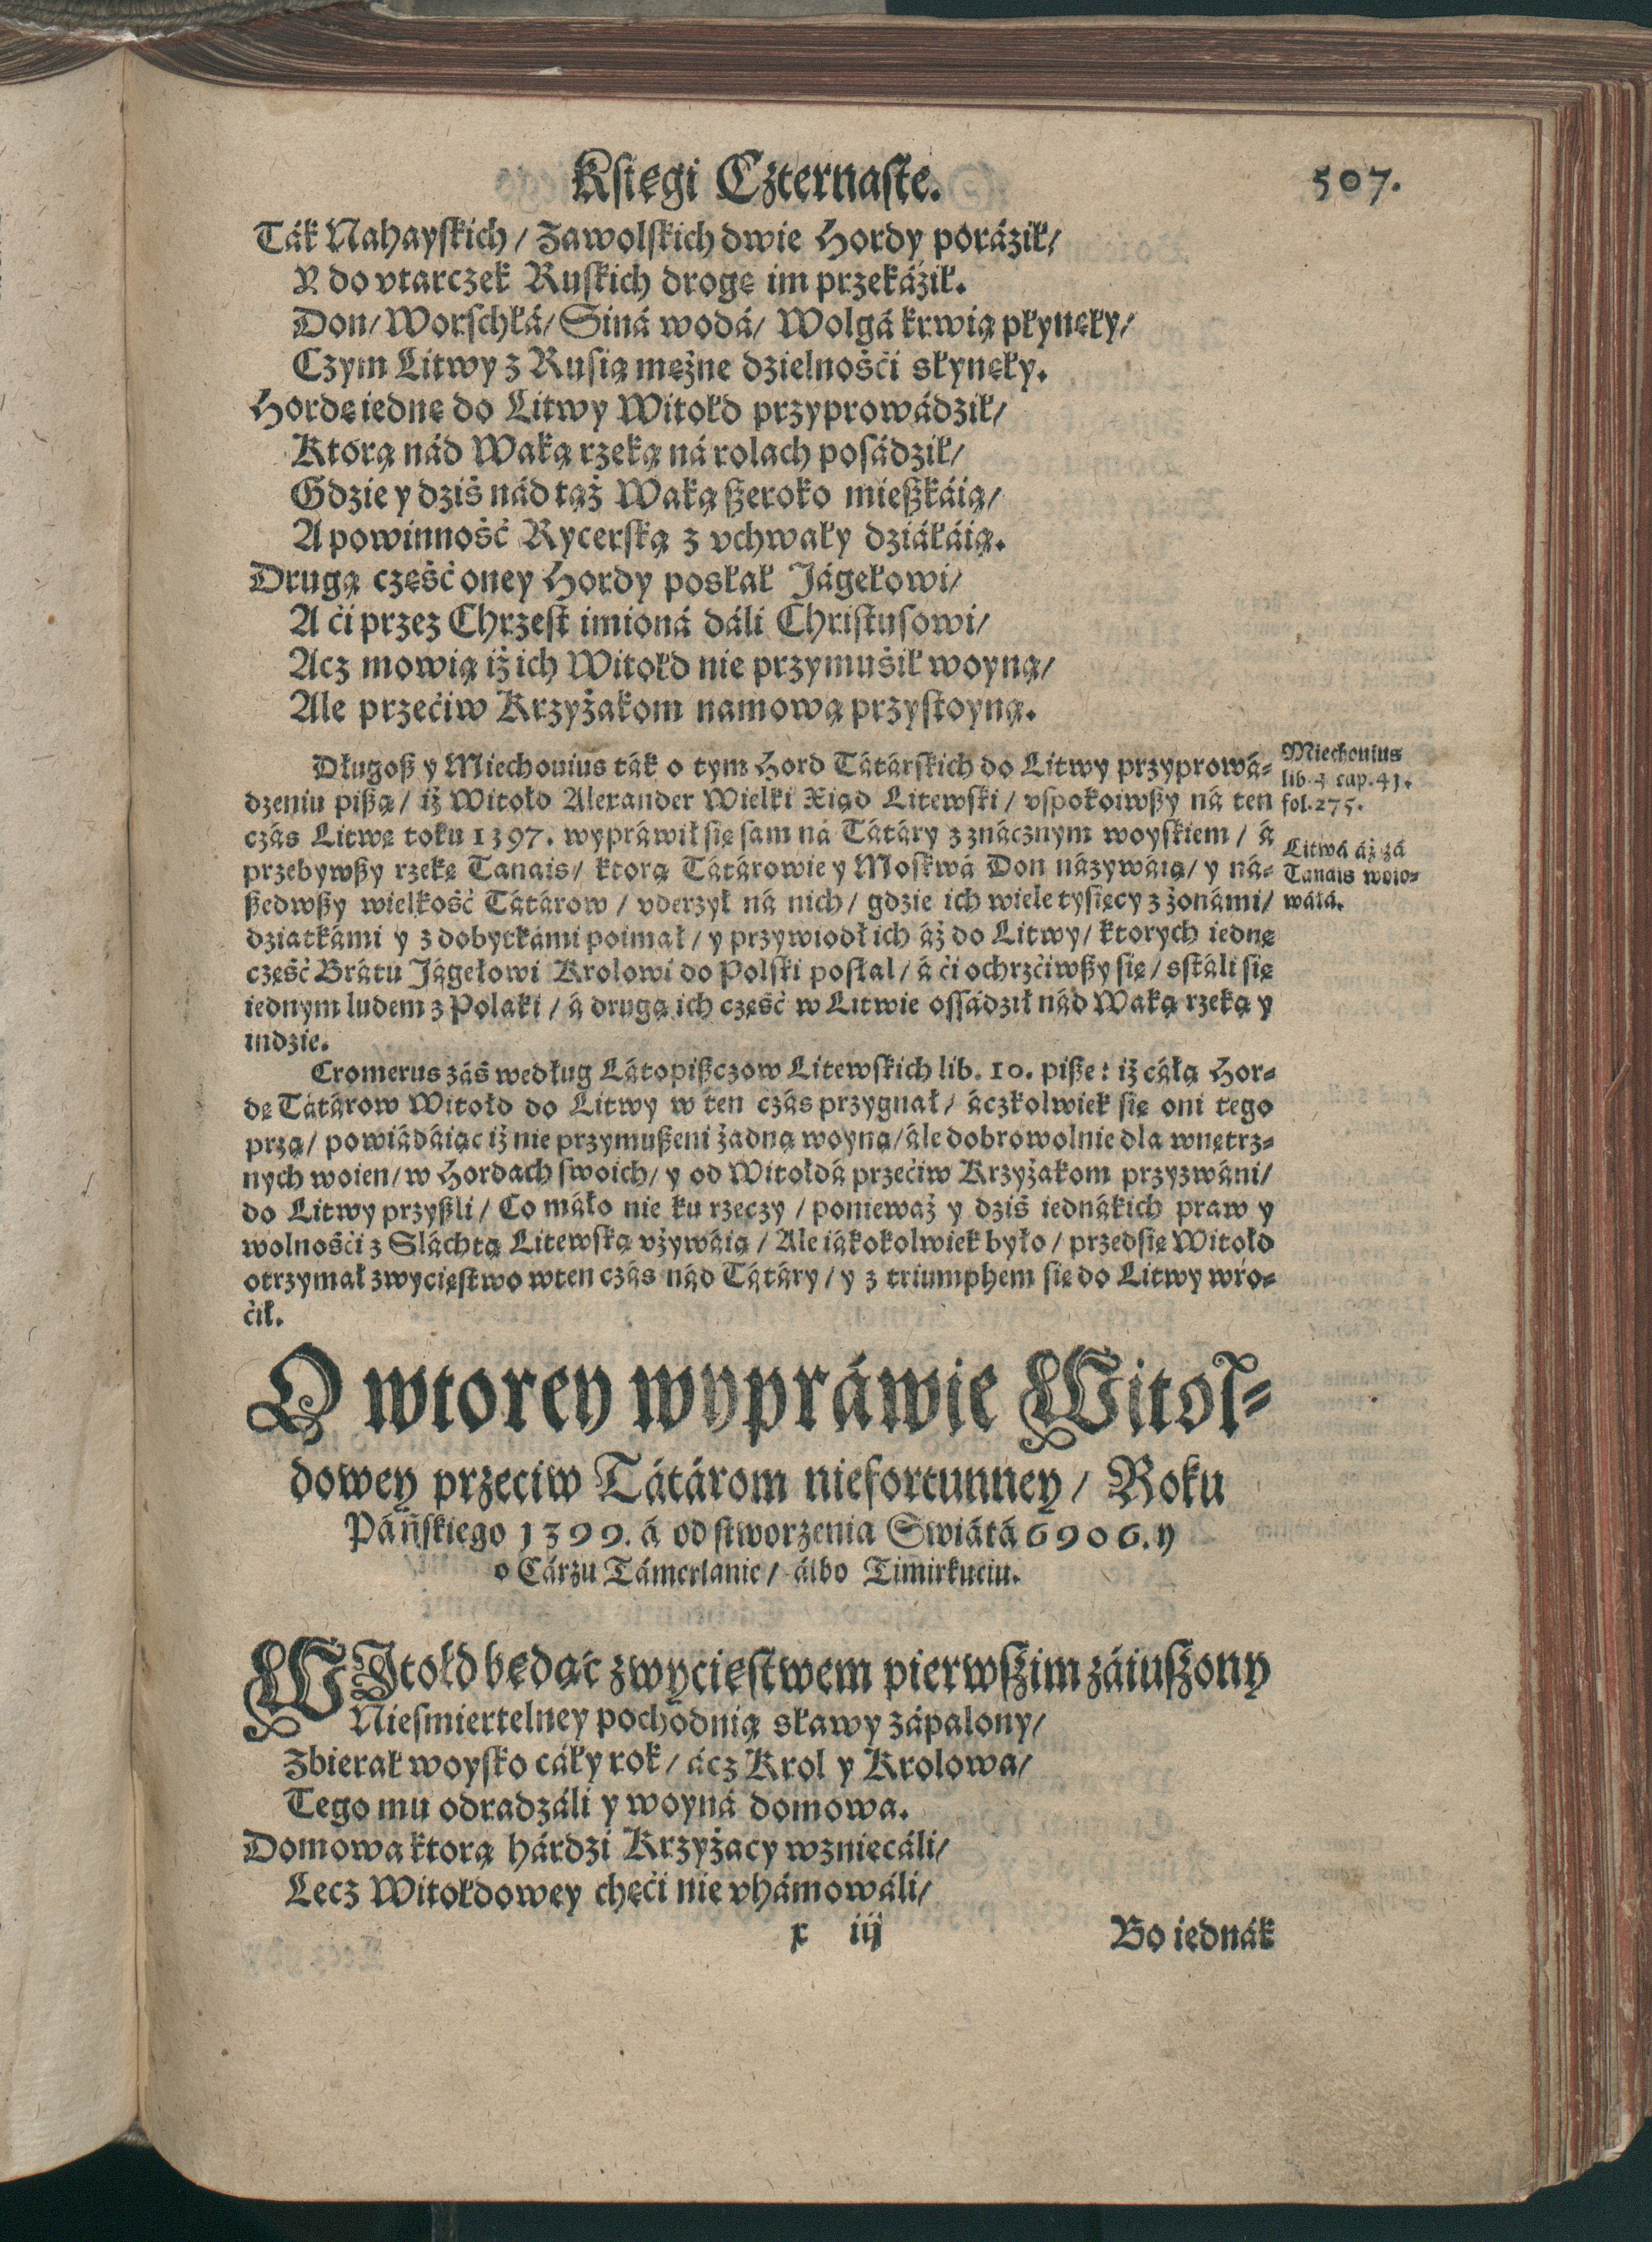 Księgi Czternaste.
507.
Ták Nahayskich / Zawolskich dwie Hordy poráził /
Y do vtarczek Ruskich drogę im przekáził.
Don / Worschká / Siná wodá / Wolgá krwią płynęły /
Czym Litwy z Rusią mężne dzielnośći słynęły.
Hordę iednę do Litwy Witołd przyprowádził /
Ktorą nád Waką rzeką ná rolach posádził /
Gdzie y dziś nád tąż Waką szeroko mieszkáią /
A powinność Rycerską z vchwały dziáłáią.
Drugą część oney Hordy posłał Jágełowi /
A ći przez Chrzest imioná dáli Christusowi /
Acz mowią iż ich Witołd nie przymuśił woyną /
Ale przećiw Krzyżakom namową przystoyną.
Długosz y Miechouius ták o tym Hord Tátárskich do Litwy przyprowá-
dzeniu piszą / iż Witołd Alexander Wielki Xiąd Litewski / vspokoiwszy ná ten
czás Litwę roku 1397. wypráwił się sam ná Tátáry z znácznym woyskiem / á
przebywszy rzekę Tanais / ktorą Tátárowie y Moskwá Don názywáią / y ná-
szedwszy wielkość Tátárow / vderzył ná nich / gdzie ich wiele tysięcy z żonámi /
dziatkámi y z dobytkámi poimał / y przywiodł ich áż do Litwy / ktorych iednę
część Brátu Jágełowi Krolowi do Polski posłał / á ći ochrzćiwszy się / sstáli się
iednym ludem z Polaki / á drugą ich część w Litwie ossádził nád Waką rzeką y
indzie.
Miechouius
lib. 4 cap. 41.
fol. 275.
Litwá áż zá
Tanais woio-
wáłá.
Cromerus záś według Látopiszczow Litewskich lib. 10. pisze : iż cáłą Hor-
dę Tátárow Witołd do Litwy w ten czás przygnał / áczkolwiek się oni tego
przą / powiádáiąc iż nie przymuszeni żadną woyną / ále dobrowolnie dla wnętrz-
nych woien / w Hordach swoich / y od Witołdá przećiw Krzyżakom przyzwáni /
do Litwy przyszli / Co máło nie ku rzeczy / ponieważ y dziś iednákich praw y
wolnośći z Sláchtą Litewską vżywáią / Ale iákokolwiek było / przedsię Witołd
otrzymał zwycięstwo w ten czás nád Tátáry / y z triumphem się do Litwy wro-
ćił.
O wtorey wypráwie Witoł-
dowey przeciw Tátárom niefortunney / Roku
Páńskiego 1399. á od stworzenia Swiátá 6906. y
o Cárzu Támerlanie / álbo Timirkuciu.
WItołd będąc zwycięstwem pierwszim záiuszony
Niesmiertelney pochodnią sławy zápalony /
Zbierał woysko cáły rok / ácz Krol y Krolowa /
Tego mu odradzáli y woyná domowa.
Domowa ktorą hárdzi Krzyżacy wzniecáli /
Lecz Witołdowey chęći nie vhámowáli /
x iij
Bo iednák